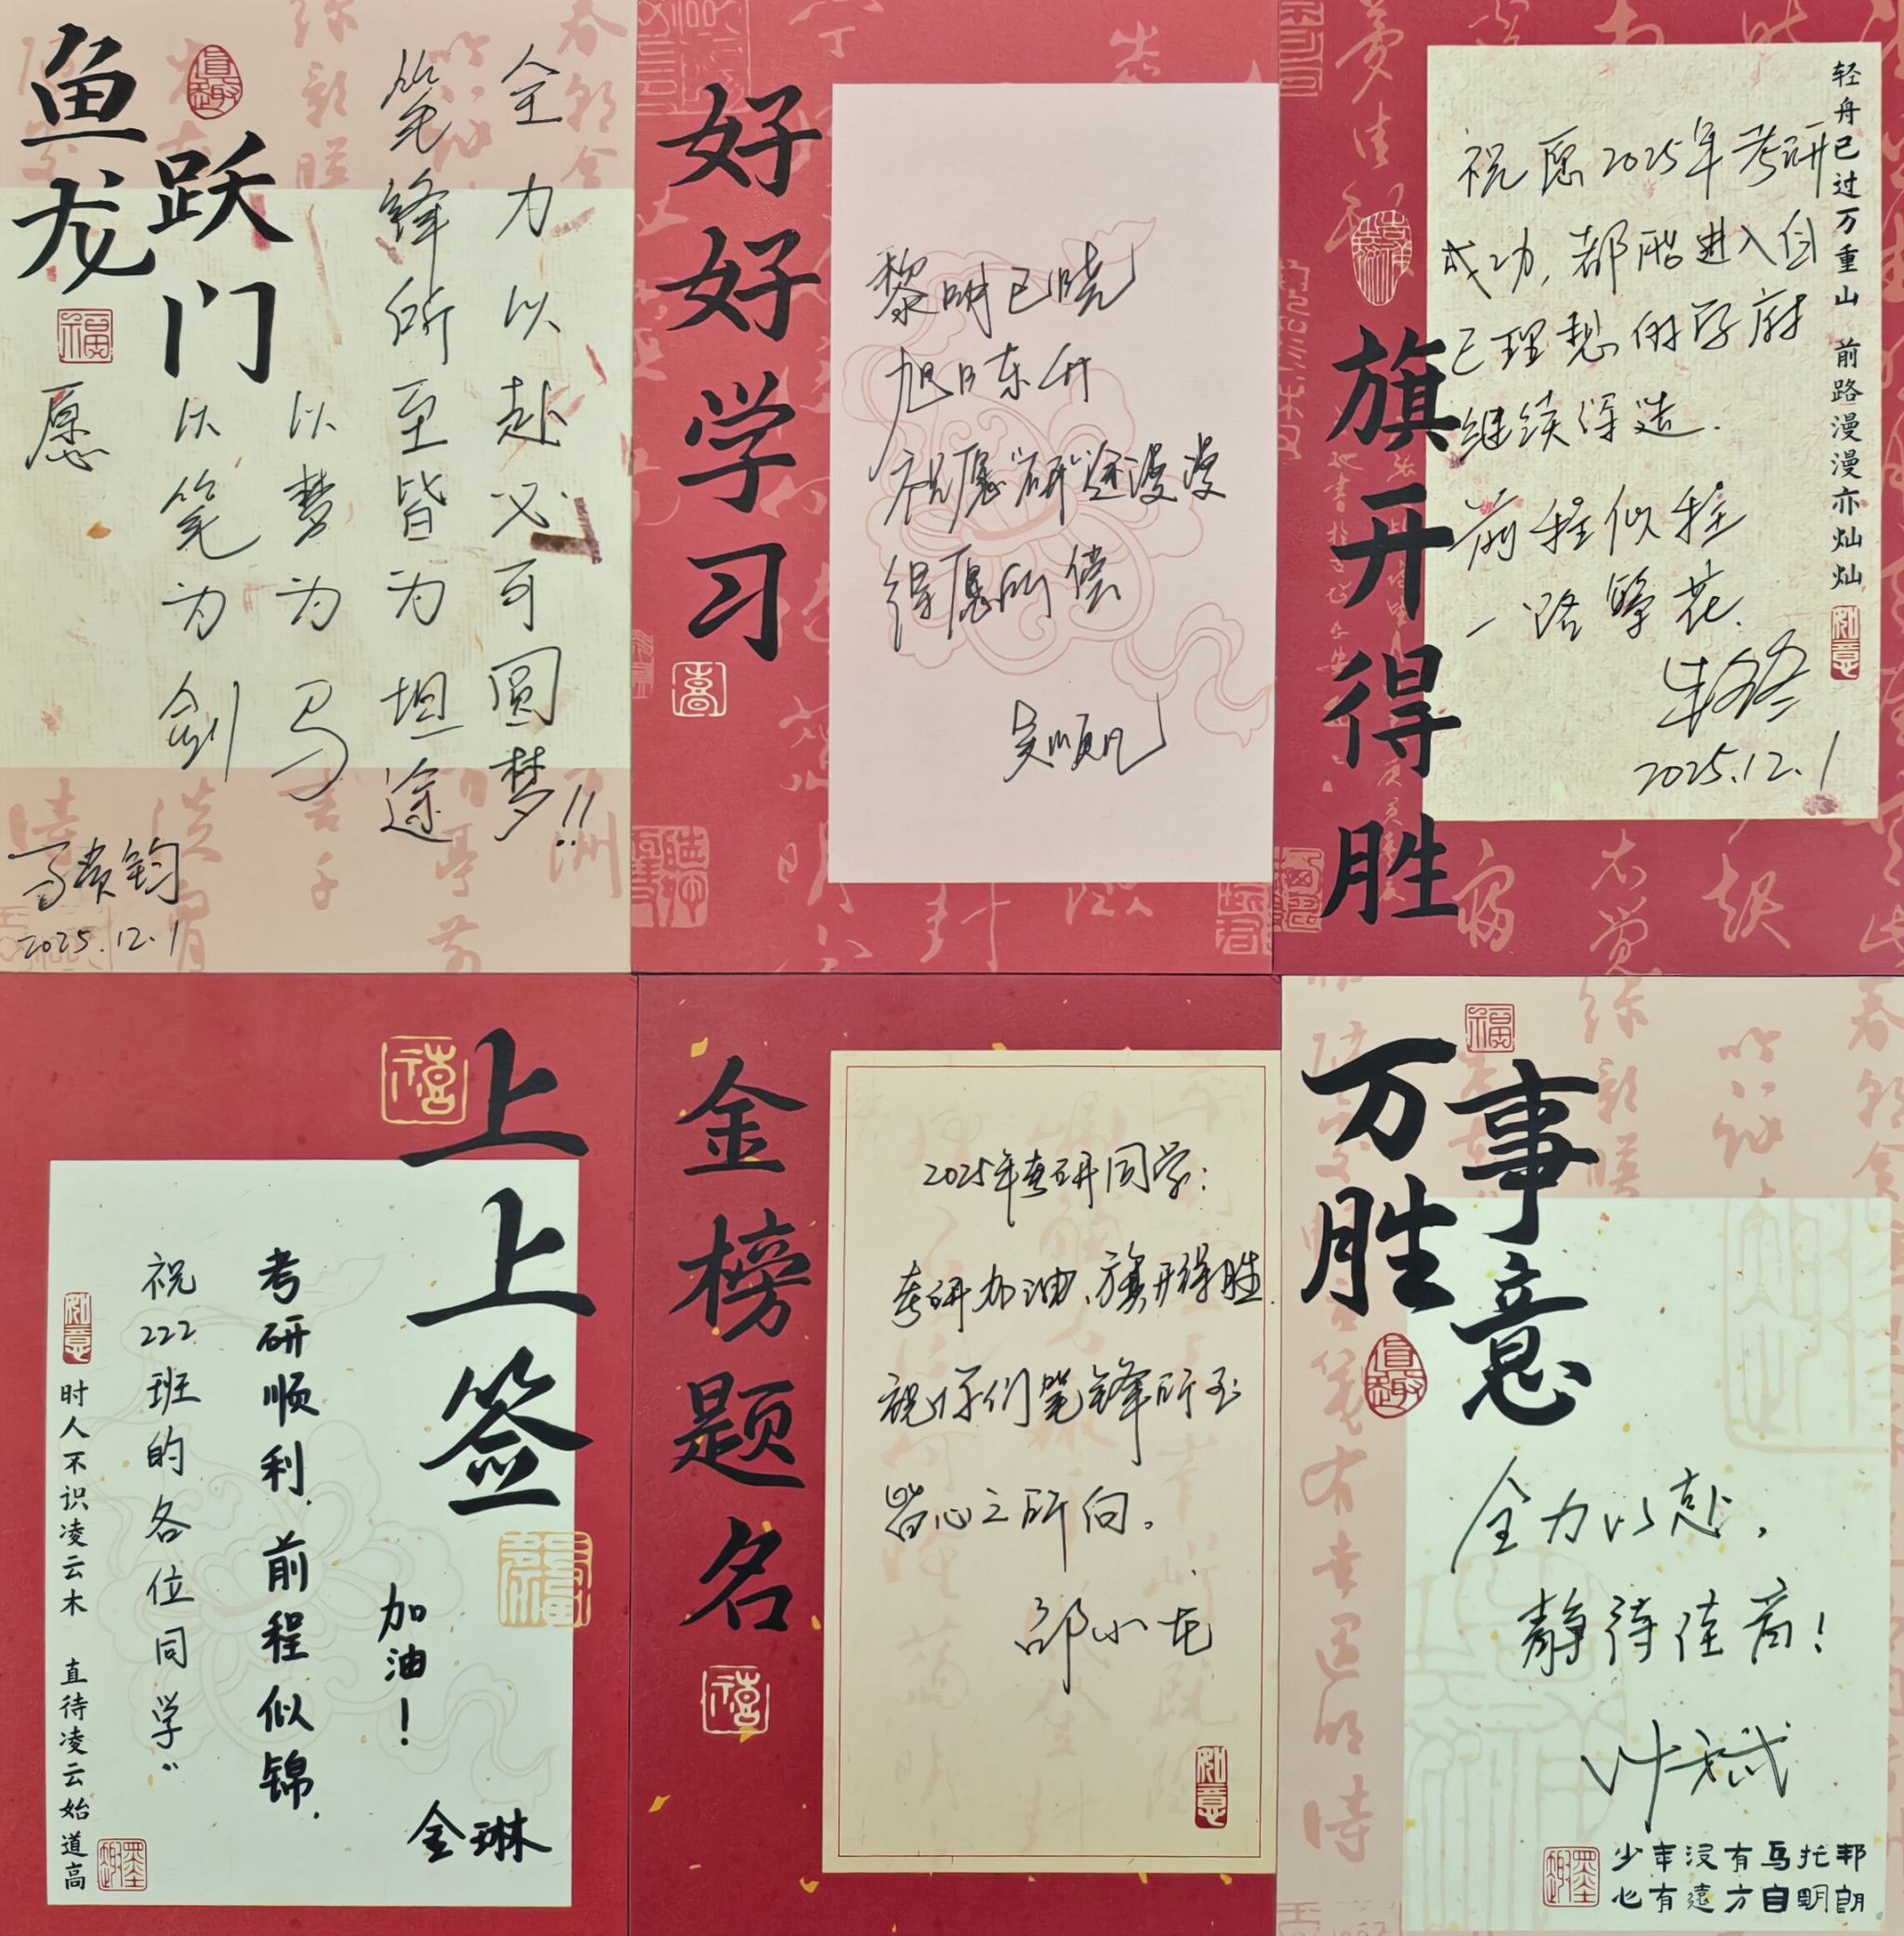 鱼跃龙门
愿
以笔为剑
以梦为马
笔锋所至皆为坦途
全力以赴必可圆梦!!
2025.12.1
好好学习
黎明已晓
旭日东升
祝愿“研”途漫漫
得愿所偿
吴顺凡
旗开得胜
轻舟已过万重山 前路漫漫亦灿灿
如意
祝愿2025年考研
成功,都能进入自
己理想的学府
继续深造.
前程似锦
一路繁花.
2025.12.1
上上签
时人不识凌云木 直待凌云始道高
如意
祝222班的各位同学:
考研顺利,前程似锦.
加油!
金琳
金榜题名
2025年考研同学:
考研加油、旗开得胜.
祝你们笔锋所至
皆心之所向。
邵小龙
如意
万事胜意
全力以赴,
静待佳音!
叶斌
少年没有乌托邦
心有遠方自明朗